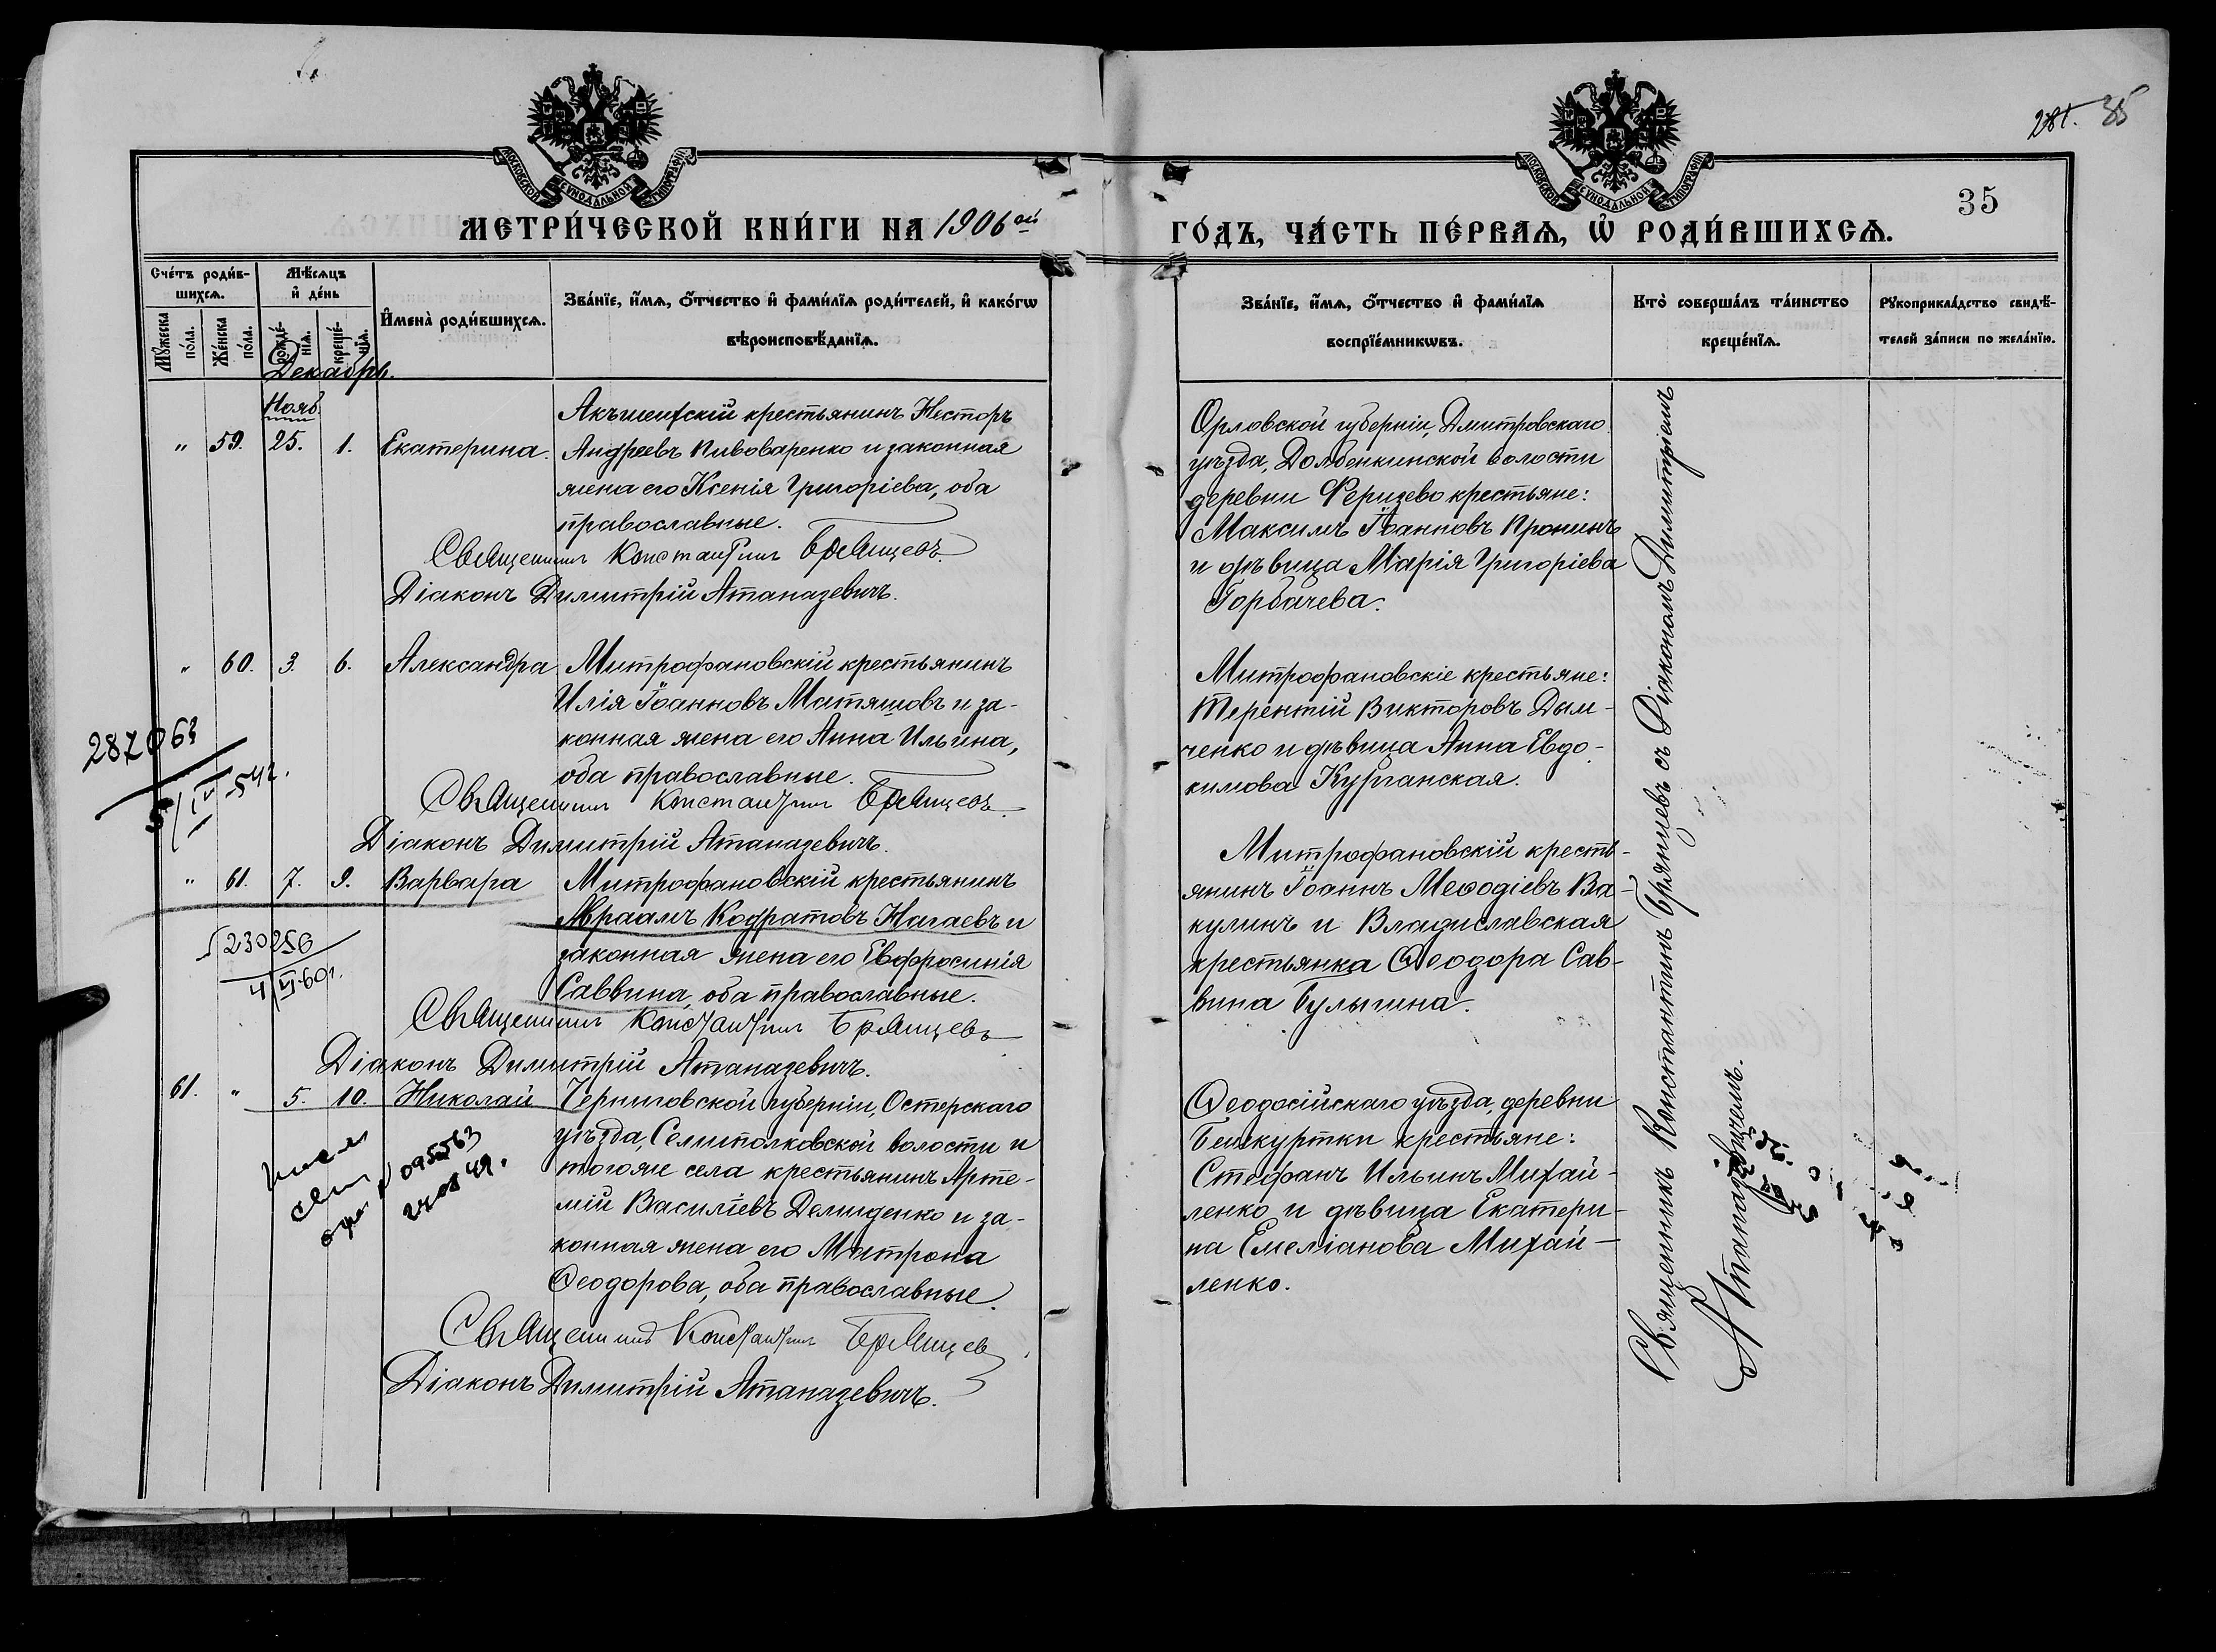 281. 35
35
МОСКОВСКОЙ СѴНОДАЛЬНОЙ ТИПОГРАФІИ
МОСКОВСКОЙ СѴНОДАЛЬНОЙ ТИПОГРАФІИ
МЕТРИ́ЧЕСКОЙ КНИ́ГИ НА 1906ой
ГО́ДЪ, ЧА́СТЬ ПЕ́РВАѦ, Ѽ РОДИ́ВШИХСѦ.
Сче́тъ роди́в-
шихсѧ.
Мꙋ́жеска
по́ла.
Же́нска
по́ла.
Мѣ́сѧцъ
и҆ де́нь
рожде́-
нїѧ.
креще́-
нїѧ.
И҆мена̀ роди́вшихсѧ.
Зва́нїе, и҆́мѧ, ѻ҆́тчество и҆ фами́лїѧ роди́телей, и҆ како́гѡ
вѣроисповѣ́данїѧ.
Зва́нїе, и҆́мѧ, ѻ҆́тчество и҆ фами́лїѧ
воспрїе́мникѡвъ.
Кто̀ соверша́лъ та́инство
креще́нїѧ.
Рꙋкоприкла́дство свидѣ́-
телей за́писи по жела́нїю.
Декабрь.
Нояб.
" 59. 25. 1. Екатерина.
Акъшеихскій крестьянинъ Несторъ
Андреевъ Пивоваренко и законная
жена его Ксенія Григоріева, оба
православные.
Священникъ Константинъ Брянцевъ
Діаконъ Димитрій Атаназевичъ.
Орловской губерніи, Дмитровскаго
уѣзда, Долбенкинской волости
деревни Феризево крестьяне:
Максимъ Іоанновъ Пронинъ
и дѣвица Марія Григоріева
Горбачева.
" 60. 3. 6. Александра
Митрофановскій крестьянинъ
Илія Іоанновъ Матяшовъ и за-
конная жена его Анна Ильина,
оба православные.
Священникъ Константинъ Брянцевъ
Діаконъ Димитрій Атаназевичъ.
Митрофановскіе крестьяне:
Терентій Викторовъ Дым-
ченко и дѣвица Анна Евдо-
кимова Курганская.
287063
" 61. 7. 9. Варвара
Митрофановскій крестьянинъ
Авраамъ Кодратовъ Нагаевъ и
законная жена его Евфросинія
Саввина, оба православные.
Священникъ Константинъ Брянцевъ
Діаконъ Димитрій Атаназевичъ.
Митрофановскій кресть-
янинъ Іоаннъ Меѳодіевъ Ва-
кулинъ и Владиславская
крестьянка Ѳеодора Сав-
вина Булыгина.
230256
4/VI-60г.
61. " 5. 10. Николай
Черниговской губерніи, Остерскаго
уѣзда, Семиполковской волости и
тогоже села крестьянинъ Арте-
мій Василіевъ Демиденко и за-
конная жена его Матрона
Ѳеодорова, оба православные.
Священникъ Константинъ Брянцев
Діаконъ Димитрій Атаназевичъ.
Ѳеодосійскаго уѣзда, деревни
Бешкуртки крестьяне:
Стефанъ Ильинъ Михай-
ленко и дѣвица Екатери-
на Емеліанова Михай-
ленко.
Священникъ Константинъ Брянцевъ съ Діакономъ Димитріемъ
Атаназевичемъ.